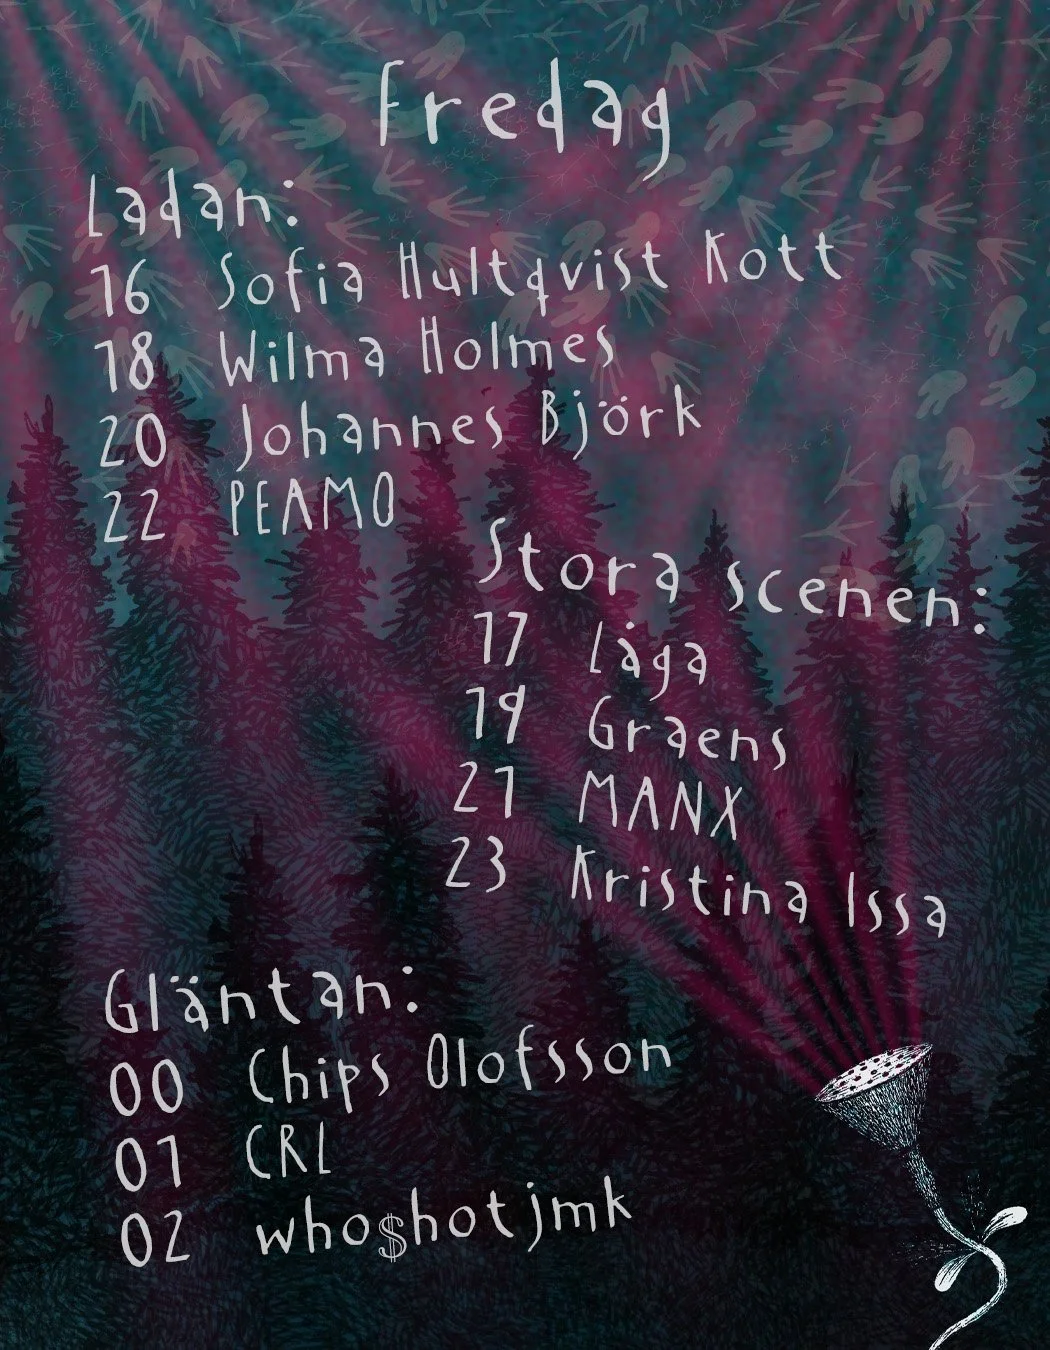 Fredag
Ladan:
16 Sofia Hultqvist Kott
18 Wilma Holmes
20 Johannes Björk
22 PEAMO
Stora scenen:
17 Låga
19 Graens
21 MANX
23 Kristina Issa
Gläntan:
00 Chips Olofsson
01 CRL
02 who$hotjmk